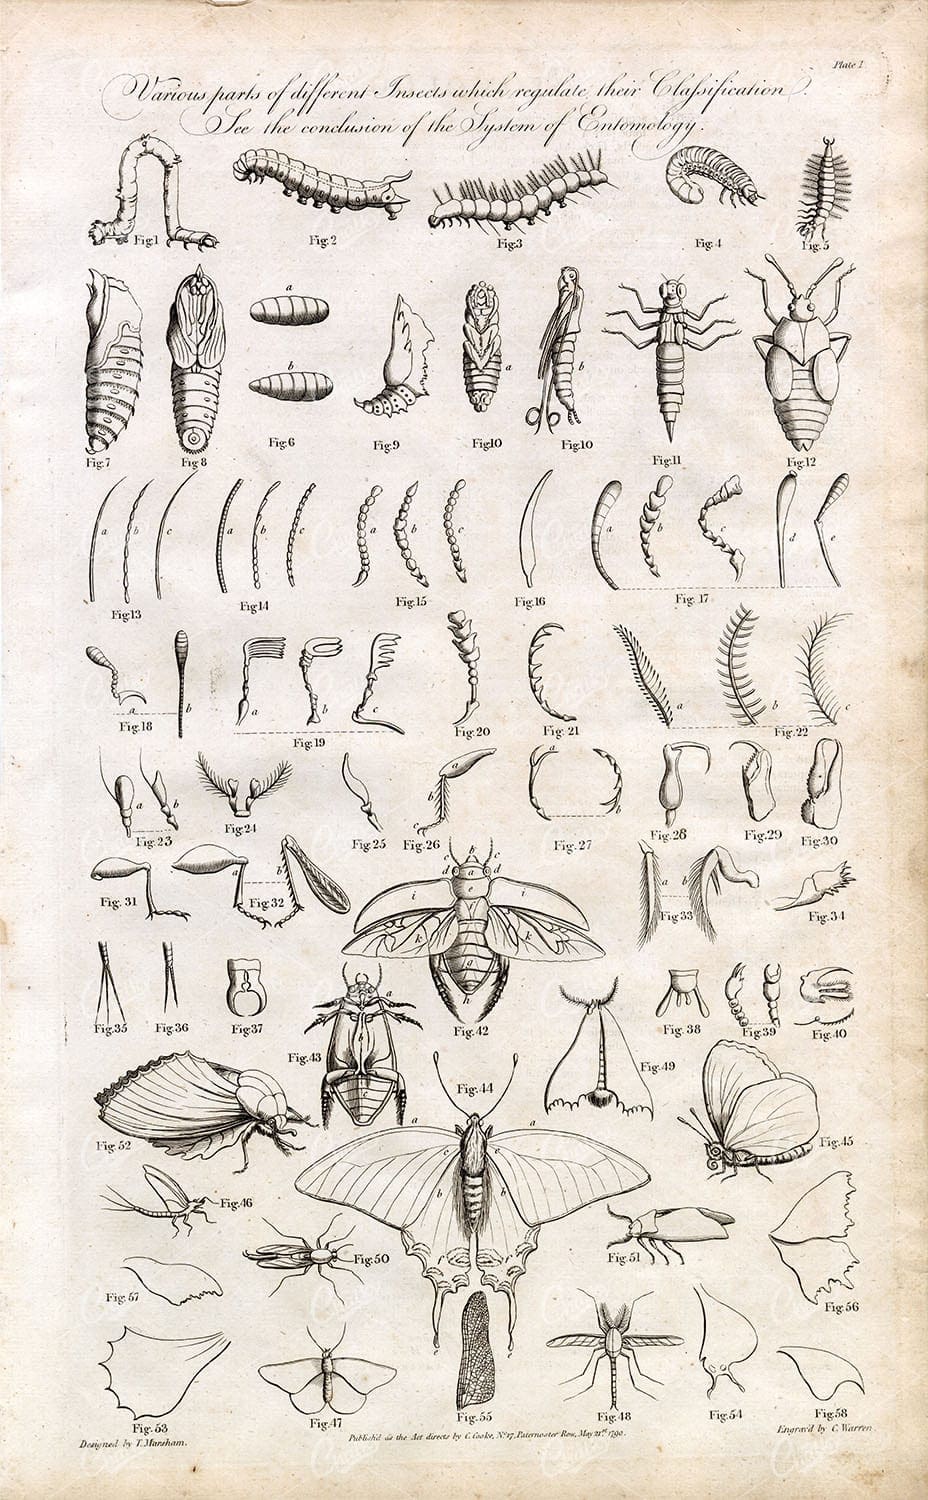 Plate 1
Various parts of different Insects which regulate their Classification.
See the conclusion of the System of Entomology.
Fig.1
Fig.2
Fig.3
Fig.4
Fig.5
a
b
a
b
Fig.7
Fig.8
Fig.6
Fig.9
Fig.10
Fig.10
Fig.11
Fig.12
a b c
a b c
a b c
a b c d e
Fig.13
Fig.14
Fig.15
Fig.16
Fig.17
a b
a b c
a b c
Fig.18
Fig.19
Fig.20
Fig.21
Fig.22
a b
a b c
a b
Fig.23
Fig.24
Fig.25
Fig.26
Fig.27
Fig.28
Fig.29
Fig.30
b
c c
d a d
e
i i
f
k k
g
h
a b
a b
Fig.31
Fig.32
Fig.33
Fig.34
Fig.35
Fig.36
Fig.37
Fig.42
Fig.38
Fig.39
Fig.40
a
b
c
Fig.43
Fig.49
Fig.44
Fig.52
Fig.45
a a
e e
b b
f f
e e
Fig.46
Fig.50
Fig.51
Fig.57
Fig.56
Fig.53
Fig.47
Fig.55
Fig.48
Fig.54
Fig.58
Designed by T. Marsham.
Publish'd as the Act directs by C. Cooke, No. 17, Paternoster Row, May 21st. 1790.
Engrav'd by C. Warren